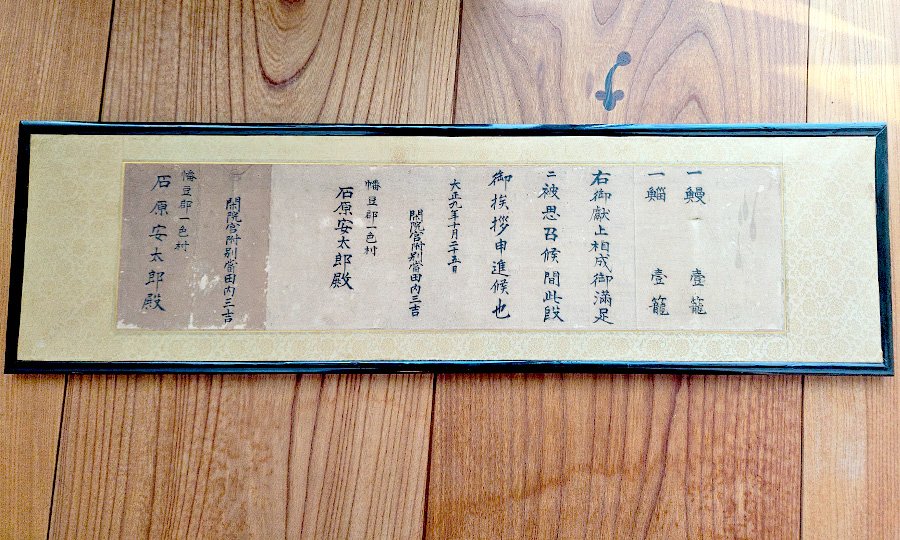 一鰻 壹籠
一鯔 壹籠
右御獻上相成御滿足
ニ被思召候間此段
御挨拶申進候也
大正九年十月二十五日
閑院宮附別當田内三吉
幡豆郡一色村
石原安太郎殿
閑院宮附別當田内三吉
幡豆郡一色村
石原安太郎殿